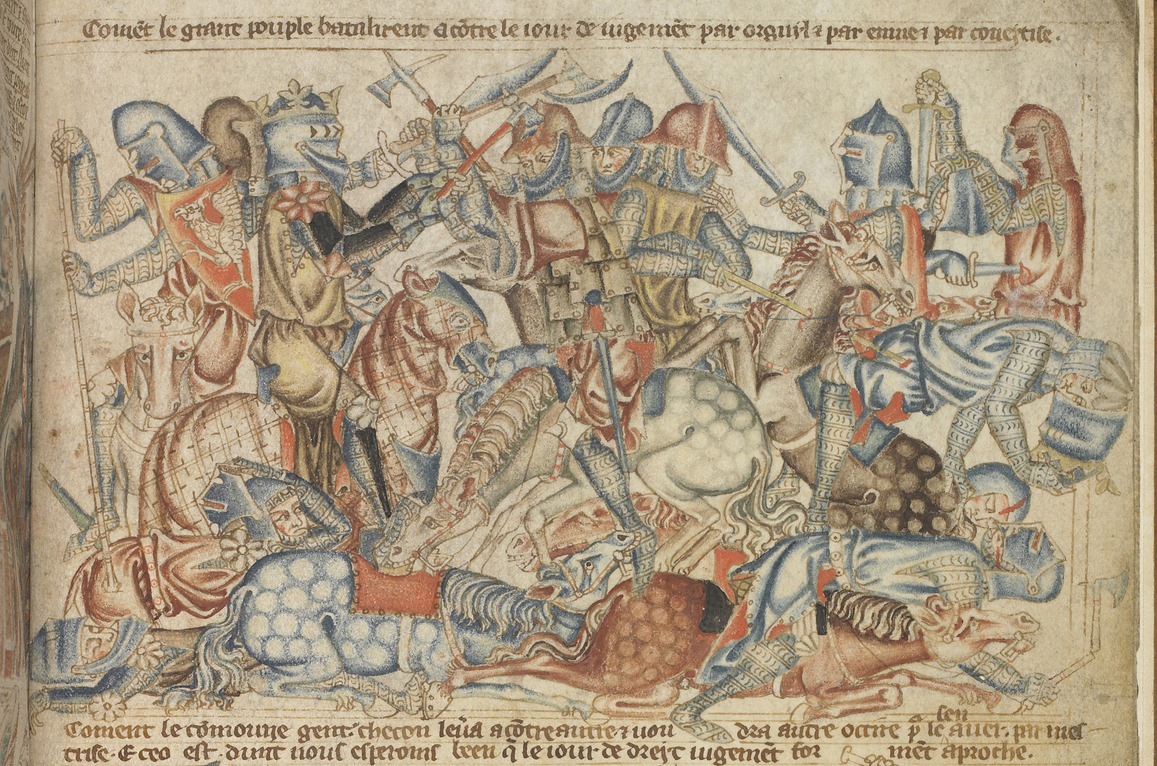 Coment le grant pouple bataillrent acōtre le iour de iugemēt par orguyl ⁊ par enuie ⁊ par coueytise.
Coment le cōmoune gent. checon leua acōtre autre ⁊ uou dra autre occire p̄ le sen auer. par mes
trise. E ceo est. dunt nous esperoms been q̄ le iour de dreyt iugemēt for mēt aproche.